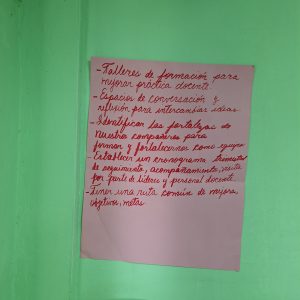 - Talleres de formación para
mejorar práctica docente.
- Espacios de conversación y
reflexión para intercambiar ideas.
- Identificar las fortalezas de
nuestros compañeros para
formar y fortalecernos como equipo
- Establecer un cronograma
de seguimiento, acompañamiento, visita
por parte de líderes y personal docente.
- Tener una ruta común de mejora,
objetivos, metas